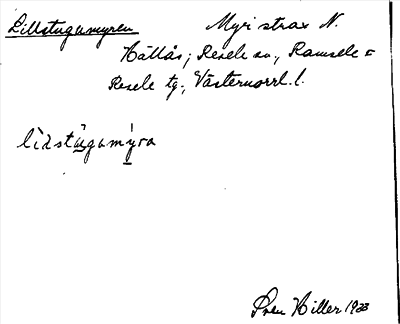 Lillstugumyren Myr strax N.
Hällås; Resele sn., Ramsele o
Resele tg., Västernorrl. l.
lìdstùgumỳra
Sven Hiller 1933